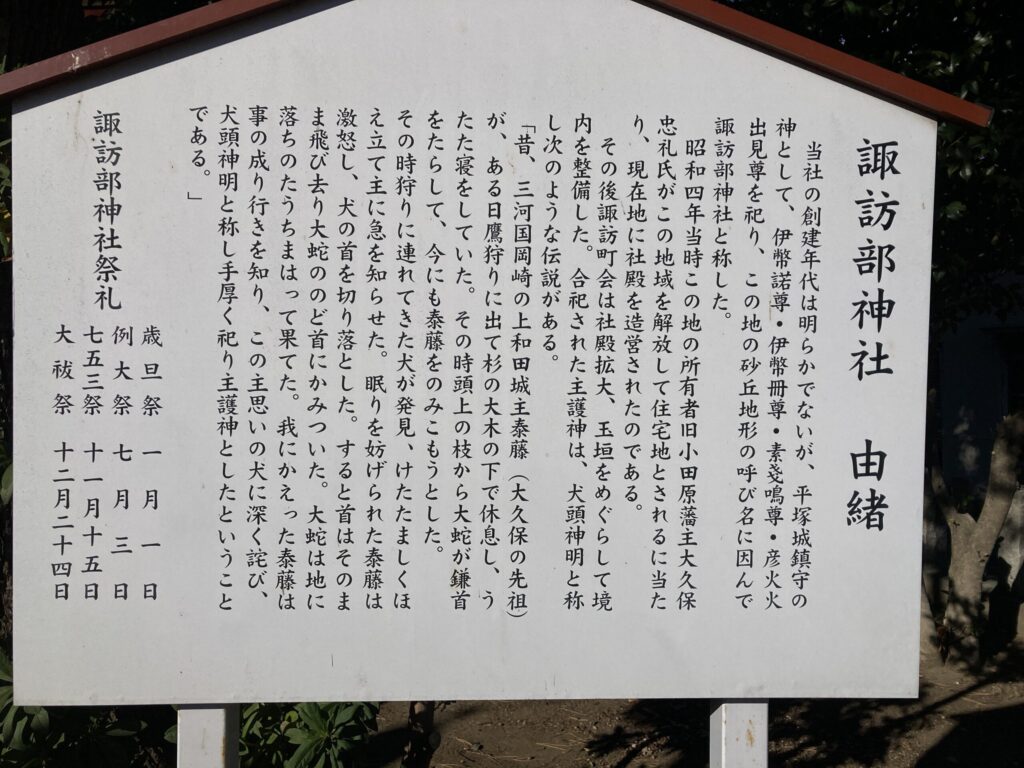 諏訪部神社　由緒
当社の創建年代は明らかでないが、平塚城鎮守の
神として、伊幣諾尊・伊幣冊尊・素戔鳴尊・彦火火
出見尊を祀り、この地の砂丘地形の呼び名に因んで
諏訪部神社と称した。
昭和四年当時この地の所有者旧小田原藩主大久保
忠礼氏がこの地域を解放して住宅地とされるに当た
り、現在地に社殿を造営されたのである。
その後諏訪町会は社殿拡大、玉垣をめぐらして境
内を整備した。合祀された主護神は、犬頭神明と称
し次のような伝説がある。
「昔、三河国岡崎の上和田城主泰藤（大久保の先祖）
が、ある日鷹狩りに出て杉の大木の下で休息し、う
たた寝をしていた。その時頭上の枝から大蛇が鎌首
をたらして、今にも泰藤をのみこもうとした。
その時狩りに連れてきた犬が発見、けたたましくほ
え立て主に急を知らせた。眠りを妨げられた泰藤は
激怒し、犬の首を切り落とした。すると首はそのま
ま飛び去り大蛇ののど首にかみついた。大蛇は地に
落ちのたうちまはって果てた。我にかえった泰藤は
事の成り行きを知り、この主思いの犬に深く詫び、
犬頭神明と称し手厚く祀り主護神としたということ
である。」
諏訪部神社祭礼
歳旦祭　一月一日
例大祭　七月三日
七五三祭　十一月十五日
大祓祭　十二月二十四日